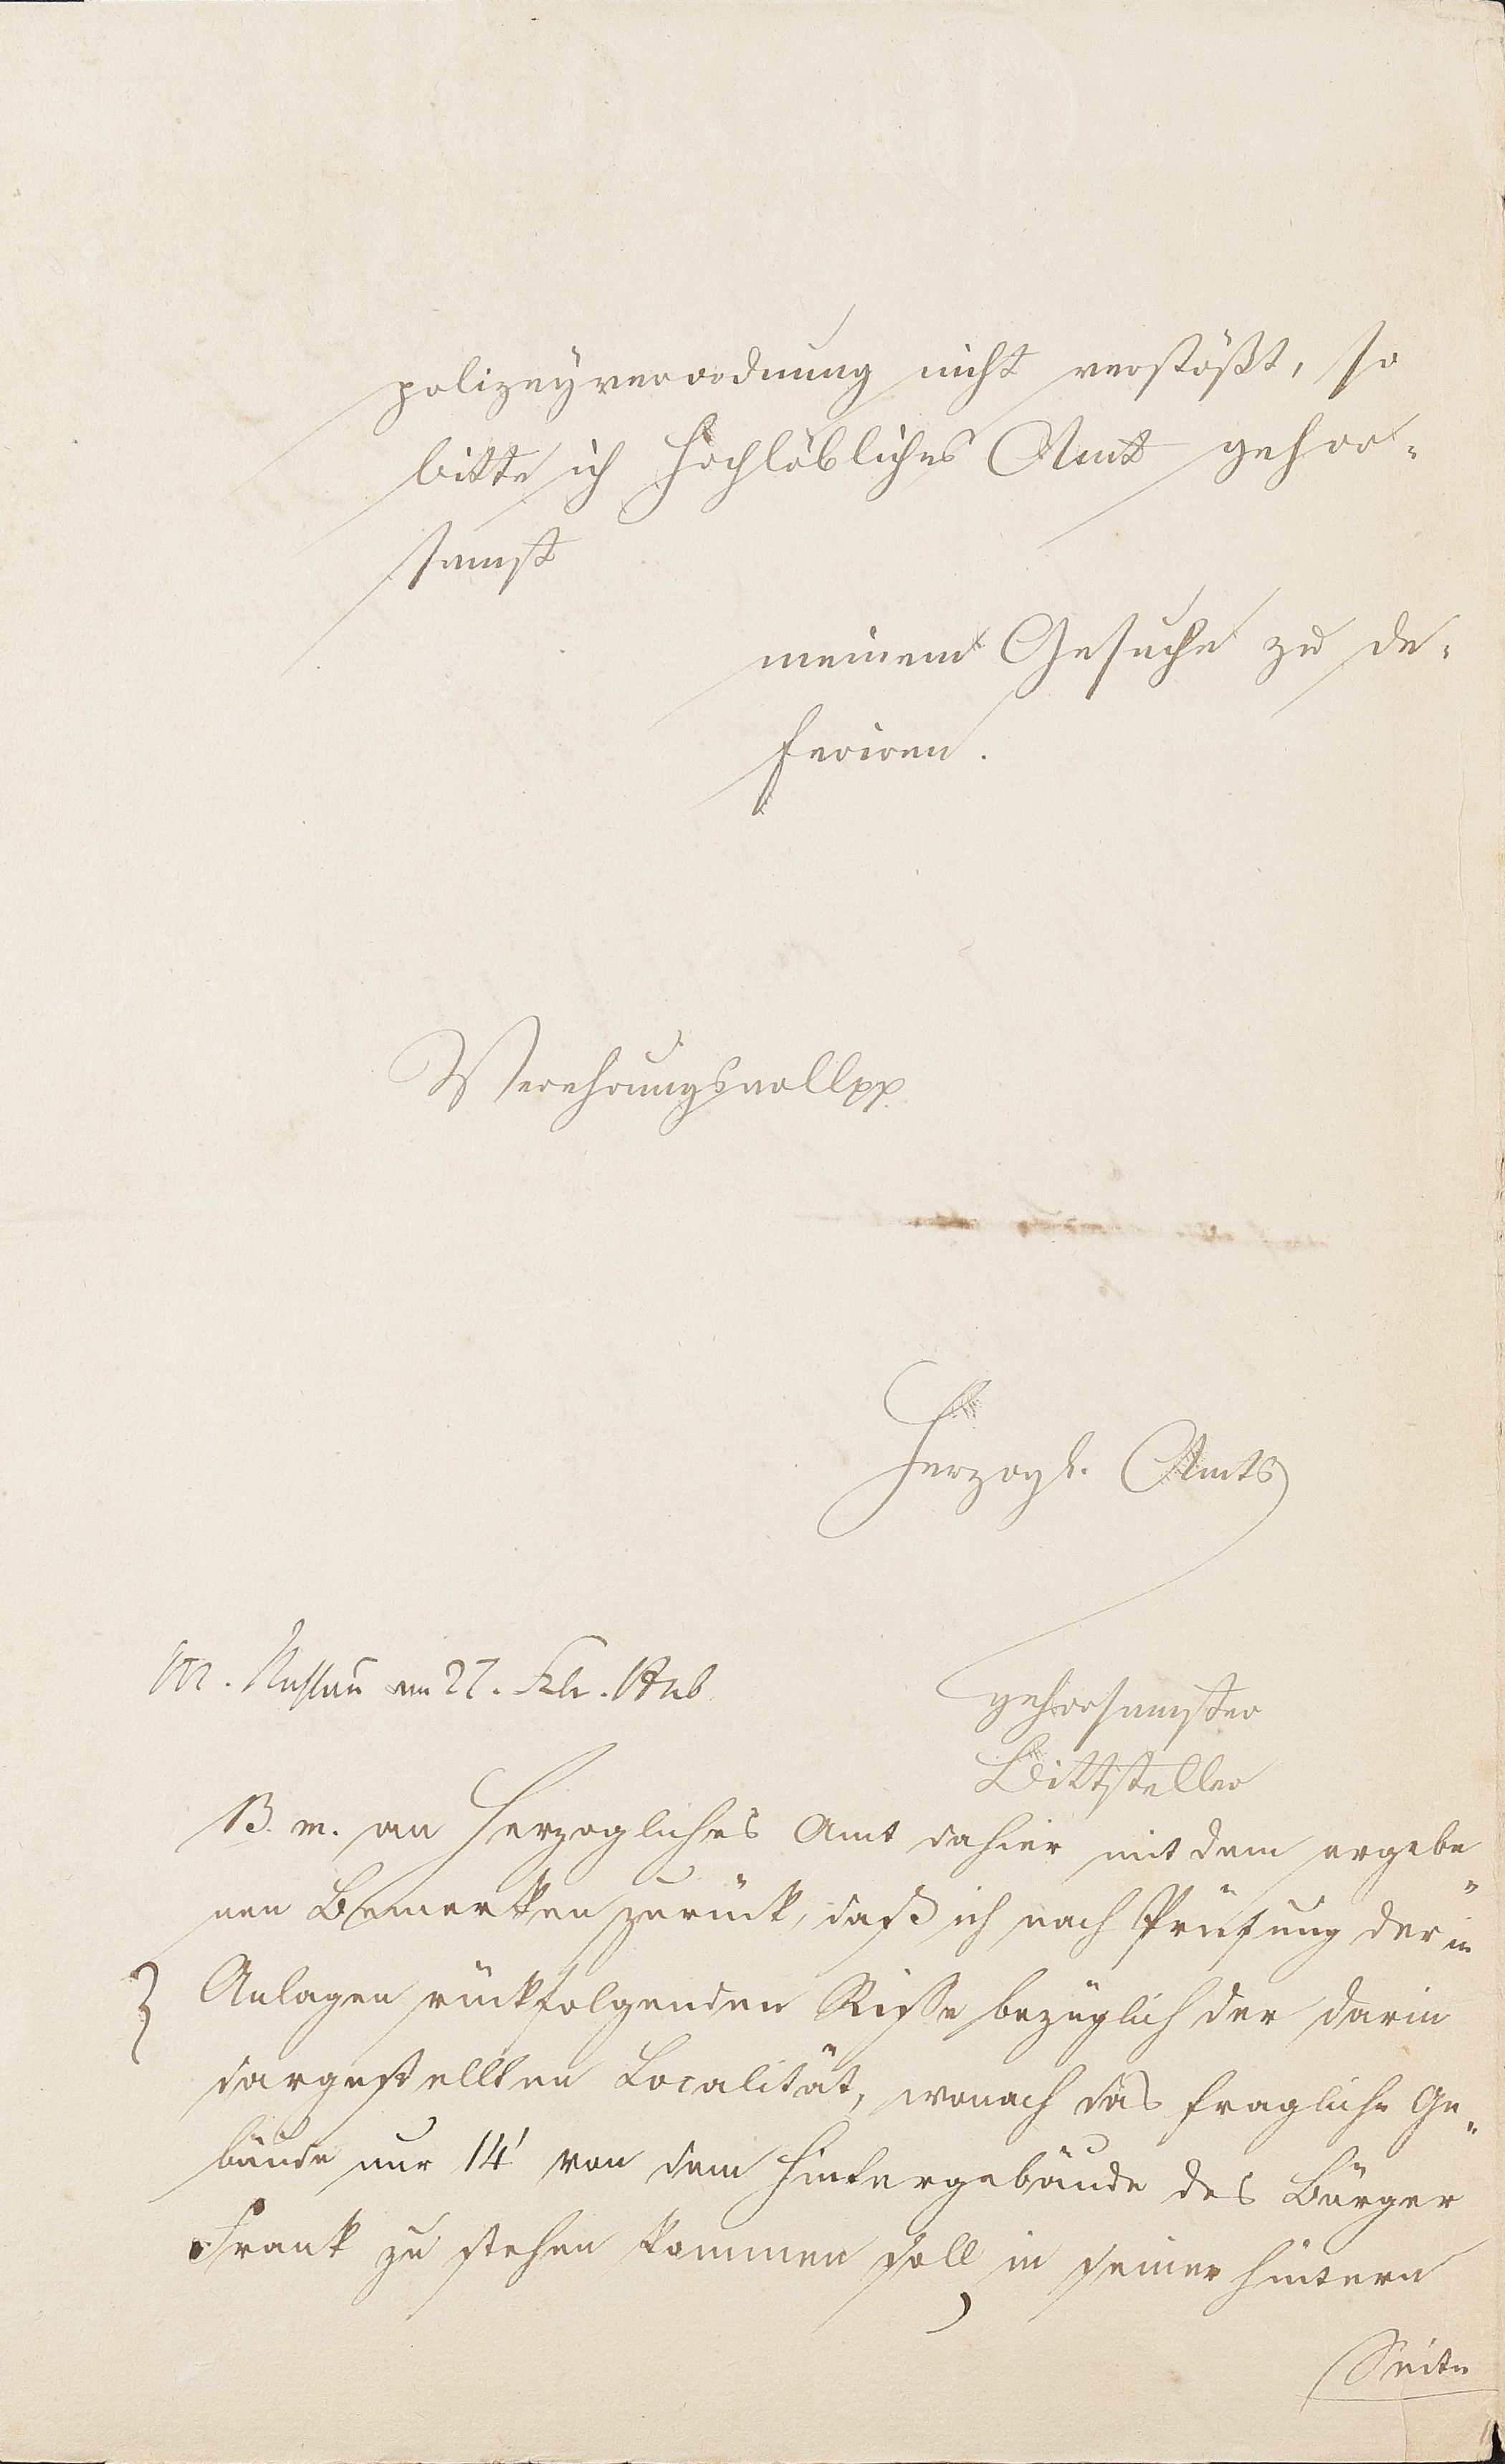 polizeyverordnung nicht verstößt, so
bitte ich Hochlöbliches Amt gehor-
samst
meinem Gesuche zu de-
feriren.
Verehrungsvollpp
Herzogl. Amts
Nassau am 27. Febr.
gehorsamster
Bittsteller
B. m. an Herzogliches Amt dahier mit dem ergebe-
nen Bemerken zurück, daß ich nach Prüfung der in
Anlagen rückfolgenden Risse bezüglich der darin
dargestellten Localität, wonach das fragliche Ge-
bäude nur 14' von dem Hintergebäude des Bürger
Frank zu stehen kommen soll, in seiner hintern
Seite